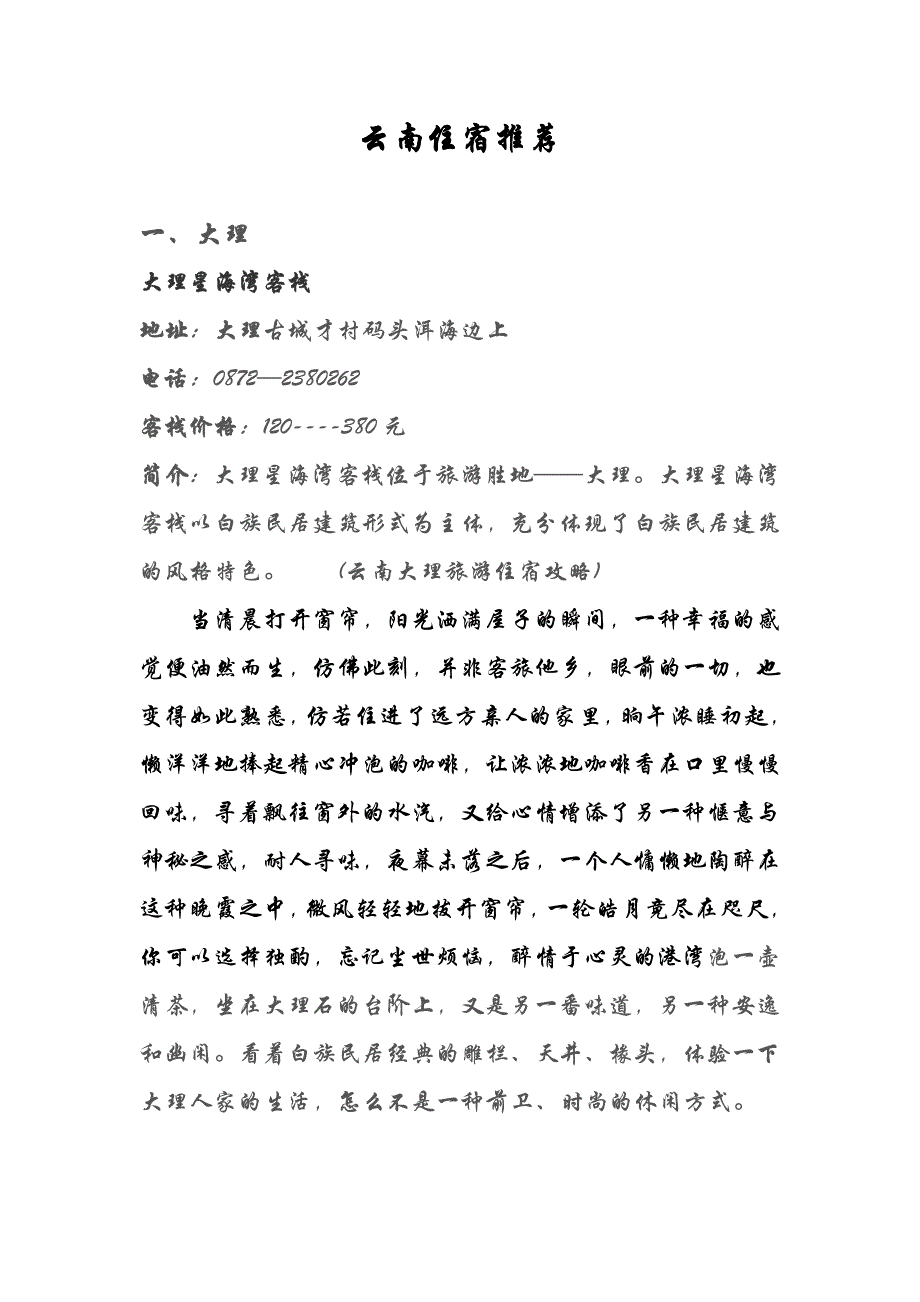 云南住宿推荐
一、大理
大理星海湾客栈
地址：大理古城才村码头洱海边上
电话：0872—2380262
客栈价格：120----380元
简介：大理星海湾客栈位于旅游胜地——大理。大理星海湾
客栈以白族民居建筑形式为主体，充分体现了白族民居建筑
的风格特色。　　(云南大理旅游住宿攻略)
当清晨打开窗帘，阳光洒满屋子的瞬间，一种幸福的感
觉便油然而生，仿佛此刻，并非客旅他乡，眼前的一切，也
变得如此熟悉，仿若住进了远方亲人的家里，晌午浓睡初起，
懒洋洋地捧起精心冲泡的咖啡，让浓浓地咖啡香在口里慢慢
回味，寻着飘往窗外的水汽，又给心情增添了另一种惬意与
神秘之感，耐人寻味，夜幕未落之后，一个人慵懒地陶醉在
这种晚霞之中，微风轻轻地拔开窗帘，一轮皓月竟尽在咫尺，
你可以选择独酌，忘记尘世烦恼，醉情于心灵的港湾泡一壶
清茶，坐在大理石的台阶上，又是另一番味道，另一种安逸
和幽闲。看着白族民居经典的雕栏、天井、椽头，体验一下
大理人家的生活，怎么不是一种前卫、时尚的休闲方式。